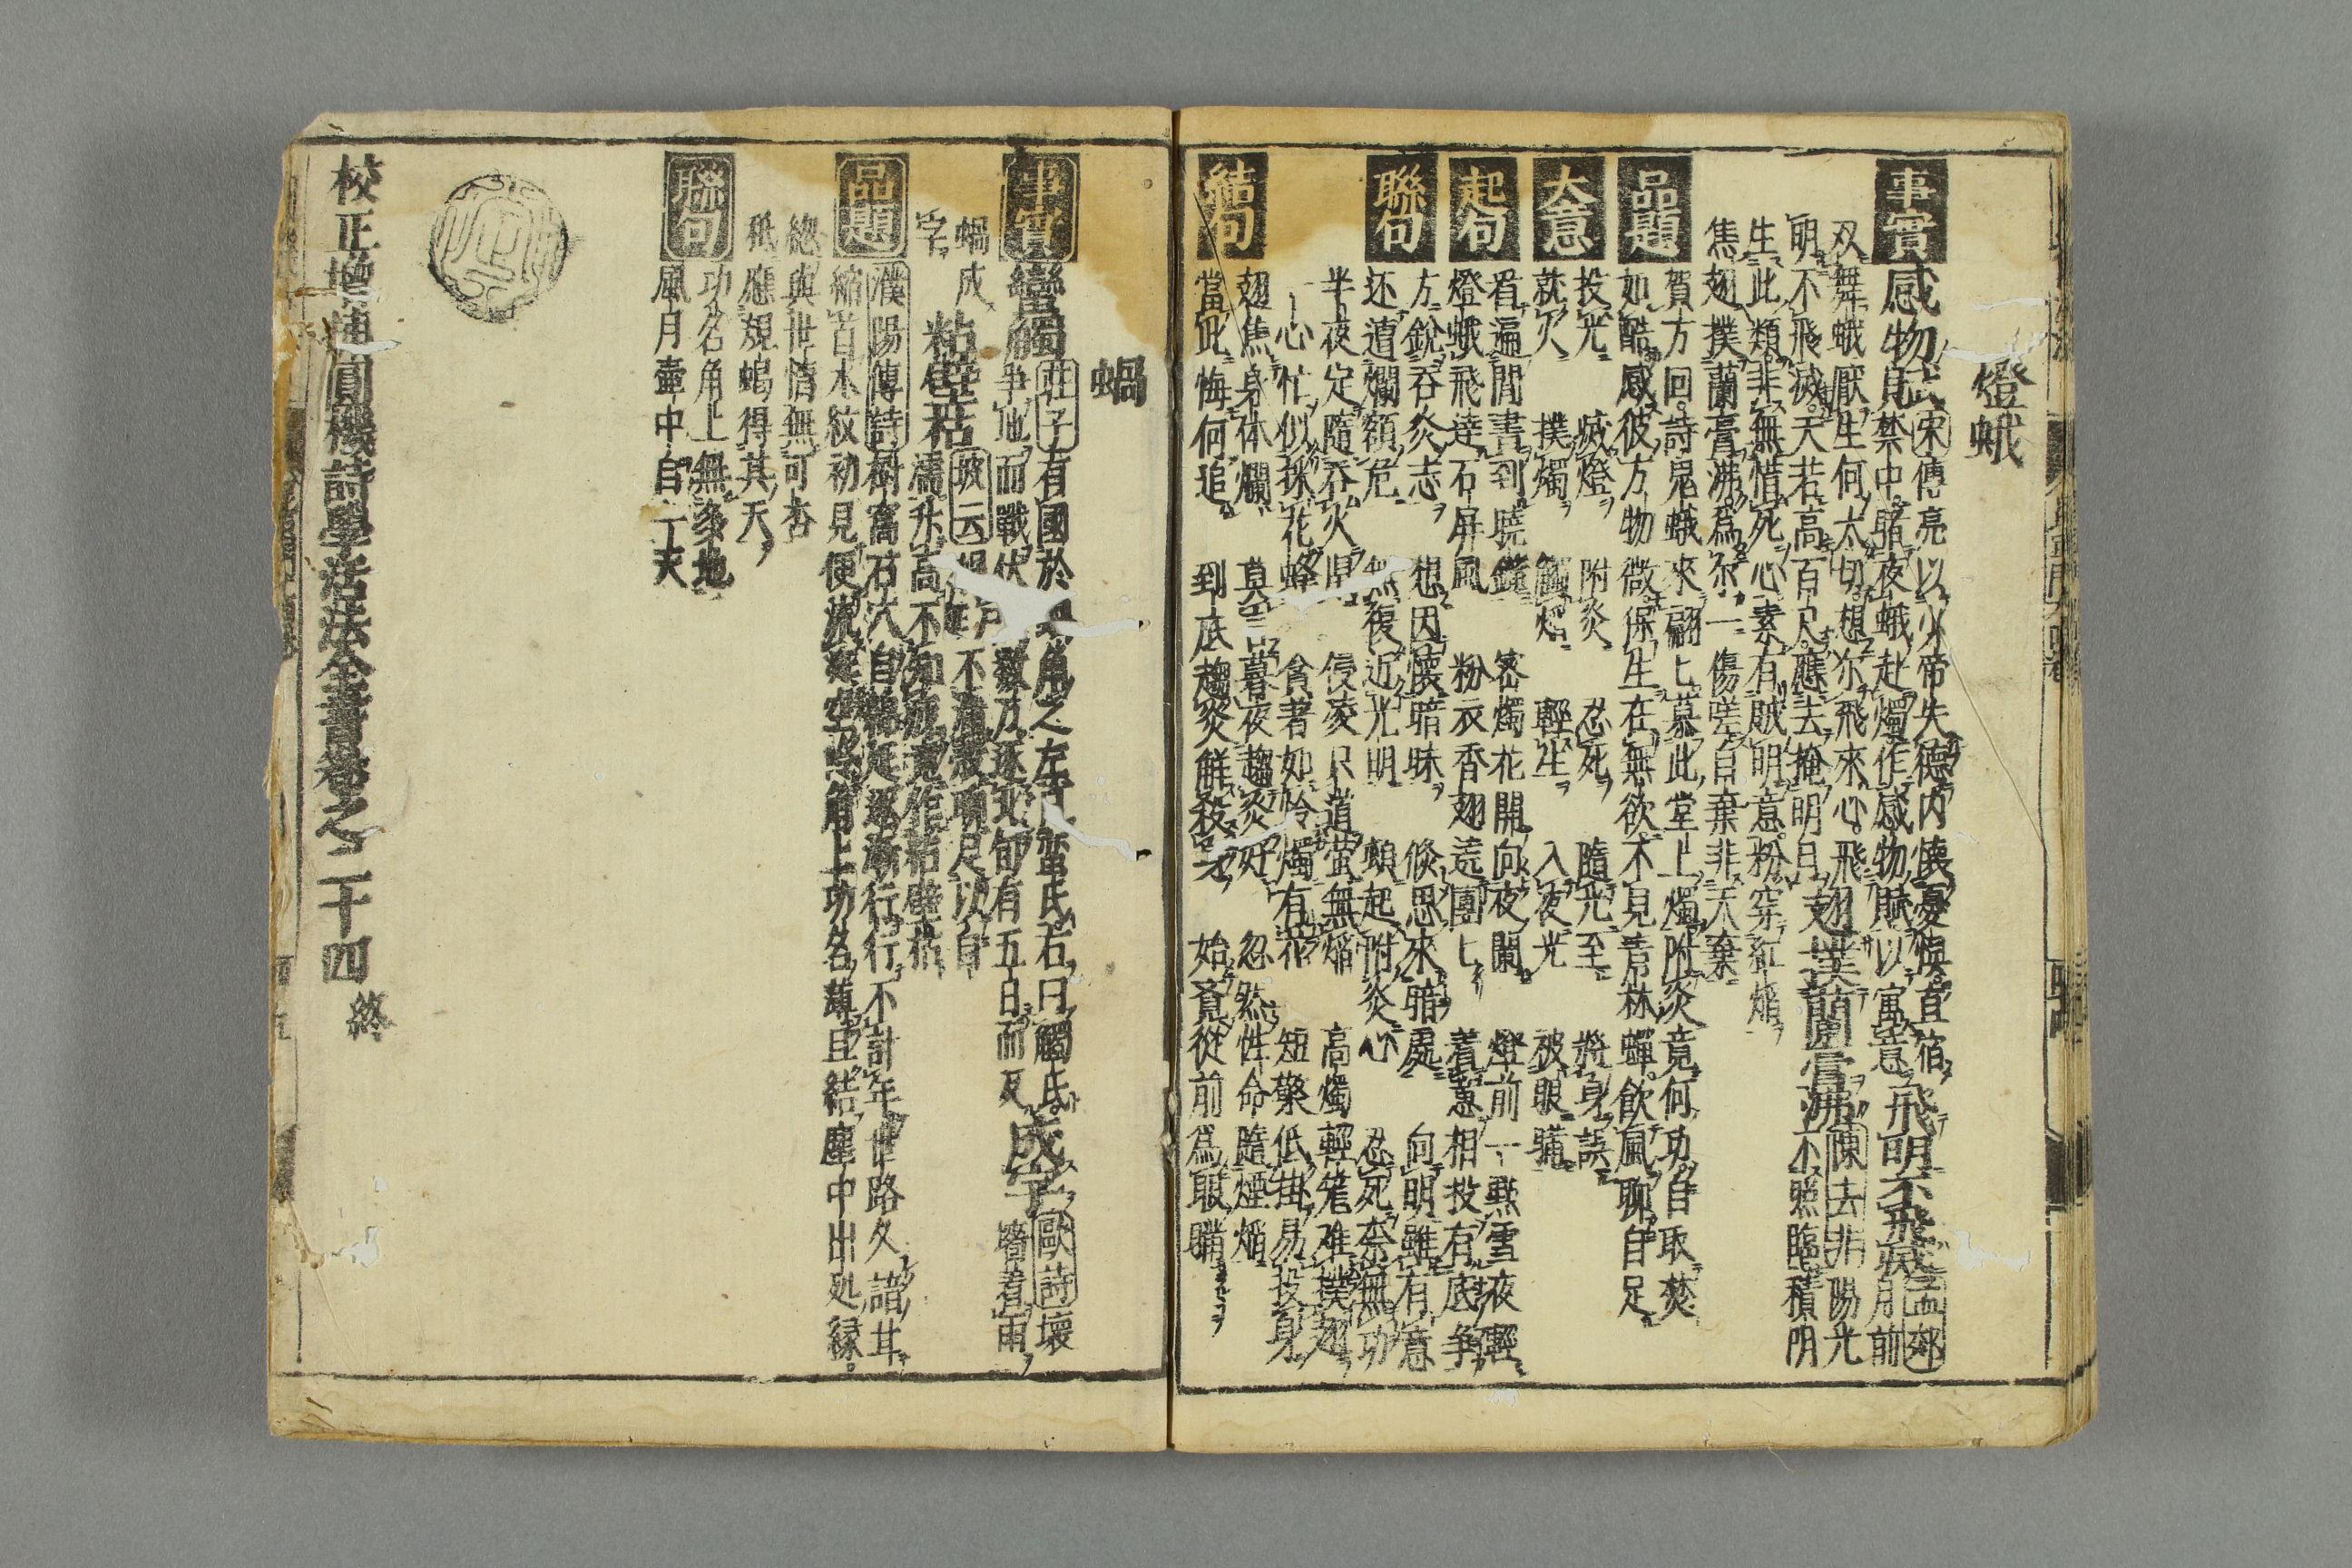 燈蛾
事實
感物賦
宋傳亮以少帝失德内懷憂懼直宿
禁中睹夜蛾赴燭作感物賦以寓意
飛明不飛滅
孟郊
月前
双舞蛾厭生何太切想尔飛來心飛
明不飛滅天若高百尺應去掩明月
撲蘭膏沸
陳去非陽光
不照臨積阴
生此類非無惜死心素有賊明意粉穿紅焰
焦翅撲蘭膏沸為尔一傷嗟自棄非天棄
品題
賀方回詩鬼蛾來翩七慕此堂上燭附炎竟何功自取焚
如酷感彼方物微保生在無欲不見青林蟬飲風聊自足
大意
投光 滅燈 附炎 忍死 隨光至 將身誤
就火 撲燭 觸熖 輕生 入夜光 破眼驕
起句
看遍閒書到曉鐘 密燭花開向夜闌 燈前一點雪夜輕
燈蛾飛達石屏風 粉衣香翅遠團七 着意相投有底争
聯句
方銳吞炎志 想因懷暗昧 倏思來暗處 向明雖有意
还遭爛額危 無復近光明 頻起附炎心 忍死柰無功
半夜定隨吞火 侵凌只道螢無焰 高燭輕籠难撲翅
一心忙似採花蜂 貪著如怜燭有花 短檠低掛易投身
結句
翅焦身体爛 莫言暮夜趨炎好 忽然性命隨煙焰
當此悔何追 到底趨炎鮮殺身 始覓從前為眼驕
蝸
事實
蠻觸
莊子有國於蝸角之左者曰蛮氏右曰觸氏
争地而戰伏尸數万逐北旬有五日而反
成字
歐詩壞
壁着雨
蝸成
字
粘壁枯
坡云腥涎不滿殼聊足以自
濡升高不知疲竟作粘壁枯
品題
濮陽傳詩樹窩石穴自蜿延逐漸行行不計年世路久諳其
縮首木紋初見便流涎空憑角上功名薄且結塵中出処縁
總與世情無可否
祇應規蝸得其天
聯句
功名角上無多地
風月壷中自一天
校正增補圓機詩學活法全書卷之二十四 終